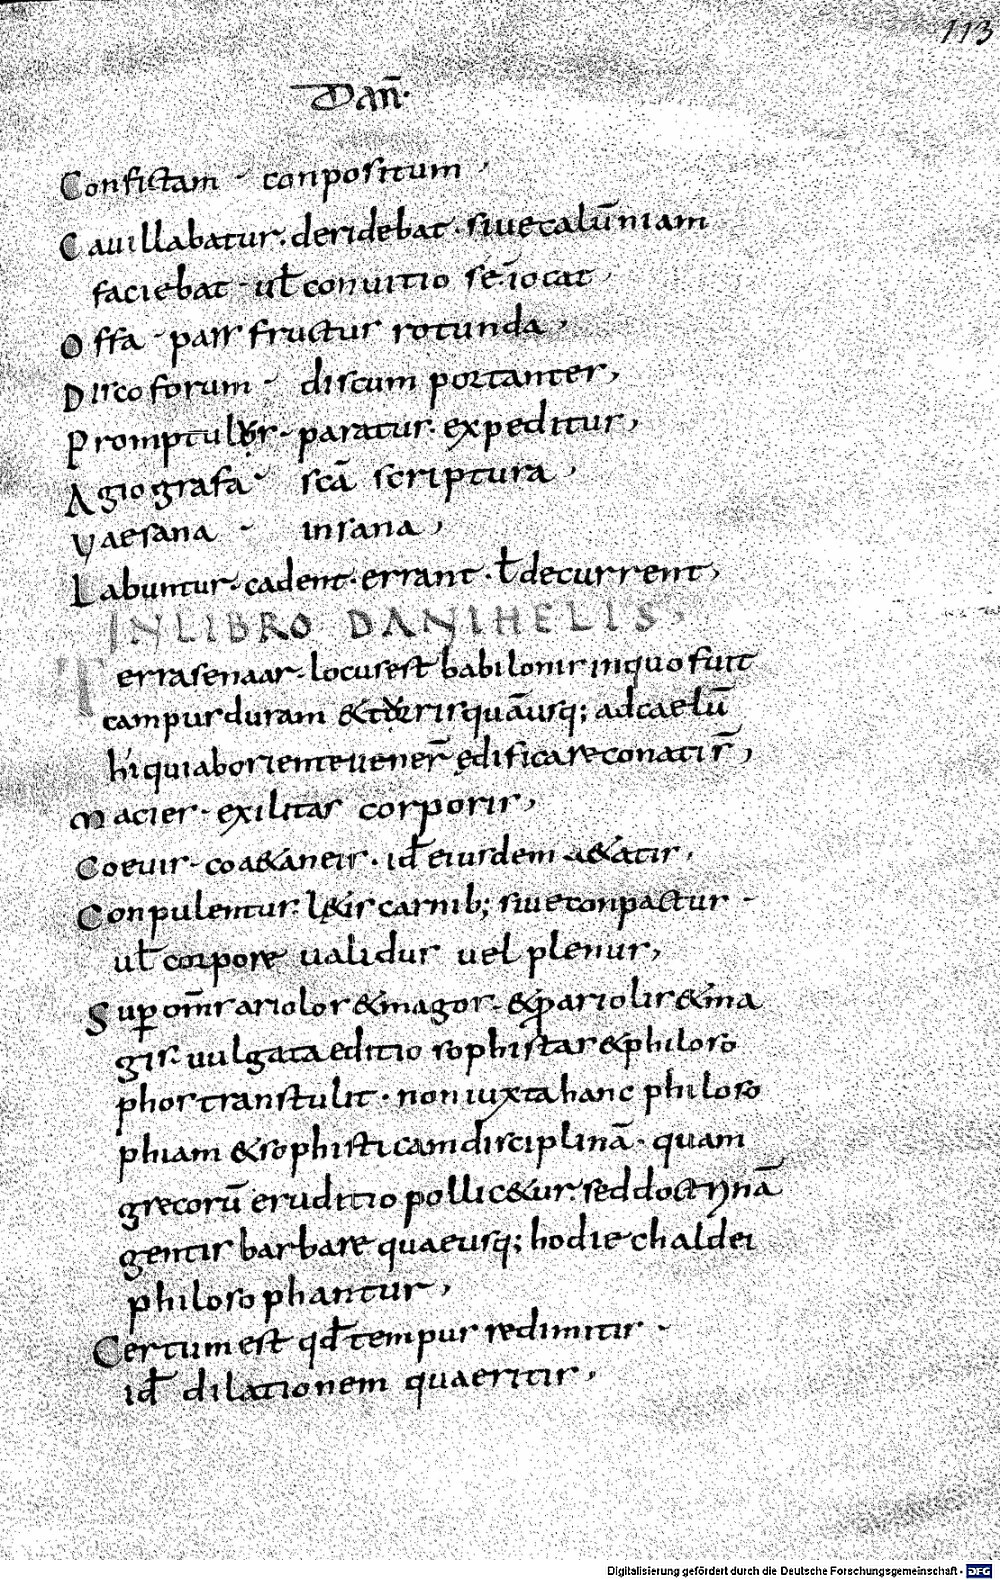 113
Dan̄.
Confictam - conpositum,
Cauillabatur. deridebat. siue calūniam
faciebat - ul̄ conuitio se īocat,
Offa - pars fructus rotunda,
Discoforum - discum portantes,
paratur. expeditur,
Agiografa - scā scriptura,
Vaesana - insana,
Labuntur. cadent. errant. ł decurrent,
IN LIBRO DANIHELIS,
Terra senaar. locus est babilonis in quo fuit
campus duram & quā usq; ad caelū
hi qui ab oriente uener̄ ędificare conati s̄,
Macies - exilitas corporis,
Coeuis - coa&aneis. id̄ eiusdem a&atis,
Conpulentus. carnib; siue conpactus -
ul̄ corpore ualidus uel plenus,
Sup om̄s ariolos & magos. & p ariolis & ma
gis. uulgata editio sophistas & philoso
phos transtulit. non iuxta hanc philoso
phiam & sophisticam disciplinā. quam
grecorū eruditio pollic&ur. sed doctrinā
gentis barbare quae usq; hodie chaldei
philosophantur,
Certum est qd̄ tempus redimitis -
id̄ dilationem quaeritis,
Digitalisierung gefördert durch die Deutsche Forschungsgemeinschaft - DFG